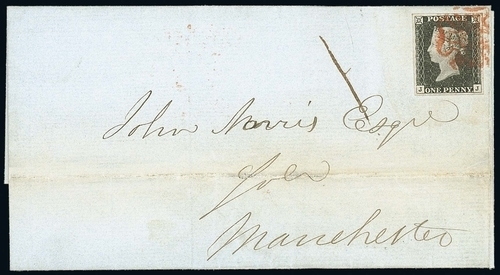 POSTAGE
ONE PENNY
J J
John Norris Esqre
Manchester